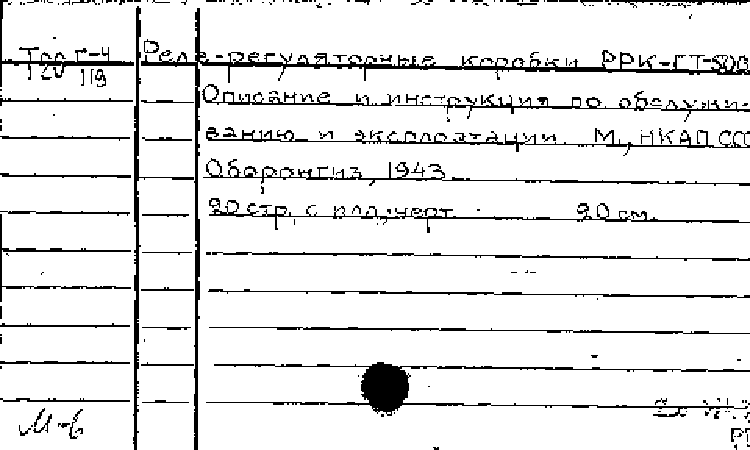 Реле-регуляторные коробки РРК-ГТ-500
Описание и инструкция по обслужи-
ванию и эксплоатации. М., НКАП ССС
Оборонгиз, 1943
20 стр. с илл., черт. 20 см.
119
М-6